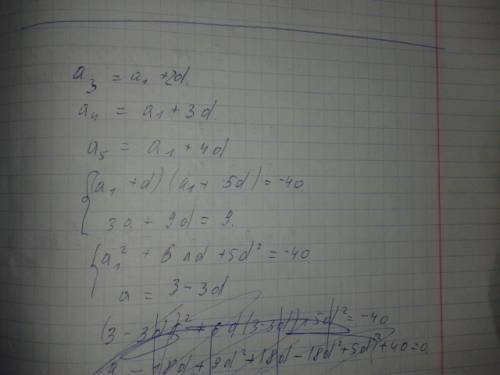 a₃ = a₁ + 2d.
a₄ = a₁ + 3d
a₅ = a₁ + 4d
{(a₁ + d)(a₁ + 5d) = -40
3a + 9d = 9.
{a₁² + 6 a d + 5d² = -40
a = 3 - 3d
(3 - 3d)² + 6d(3-3d) + 5d² = -40
9 - 18d + 9d² + 18d - 18d² + 5d² + 40 = 0